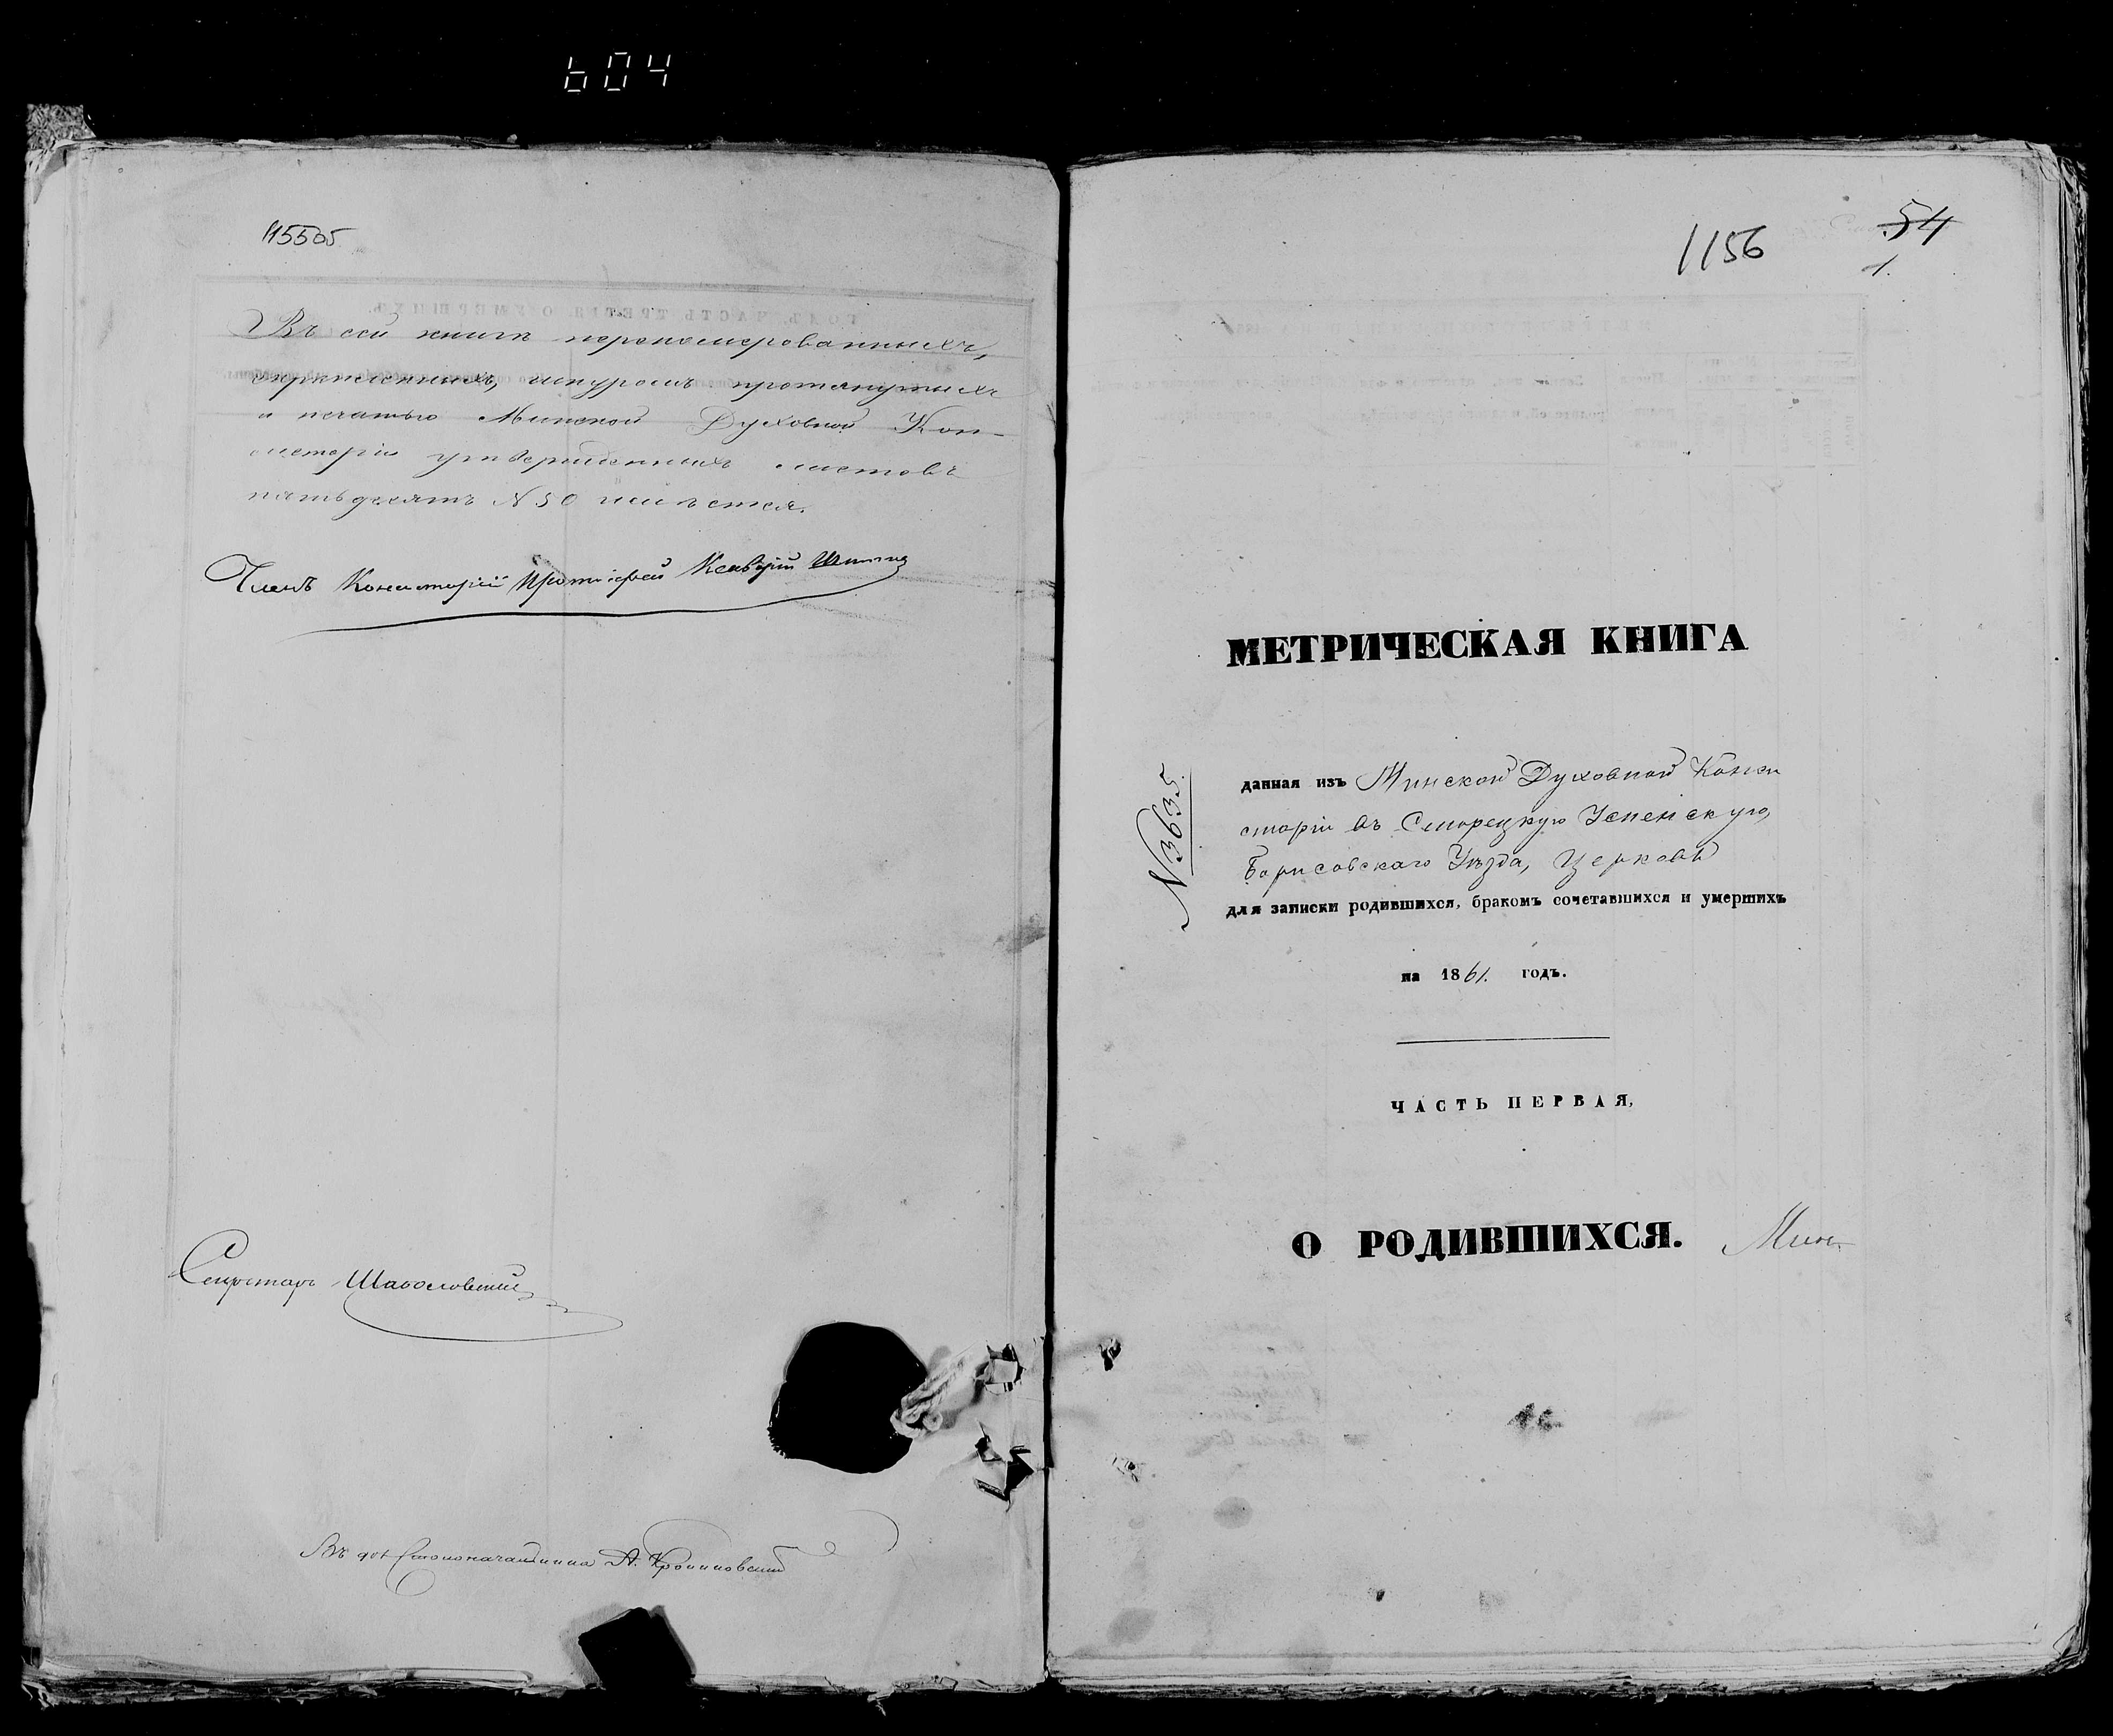 604
Въ сей книгѣ перенумерованныхъ,
скрепленныхъ, шнуромъ протянутыхъ
и печатью Минской Духовной Кон-
систоріи утвержденныхъ листовъ
пятьдесятъ N 50 имѣется.
Членъ Консисторіи Протоіерей
Секретарь
Столоначальника А.
1156
54
1.
МЕТРИЧЕСКАЯ КНИГА
N 3635.
данная изъ Минской ДуховнойКонси
сторіи въ Сморецкую Успенскую,
Борисовскаго Уѣзда, Церковь
для записки родившихся, бракомъ сочетавшихся и умершихъ
на 1861. годъ.
ЧАСТЬ ПЕРВАЯ,
О РОДИВШИХСЯ.